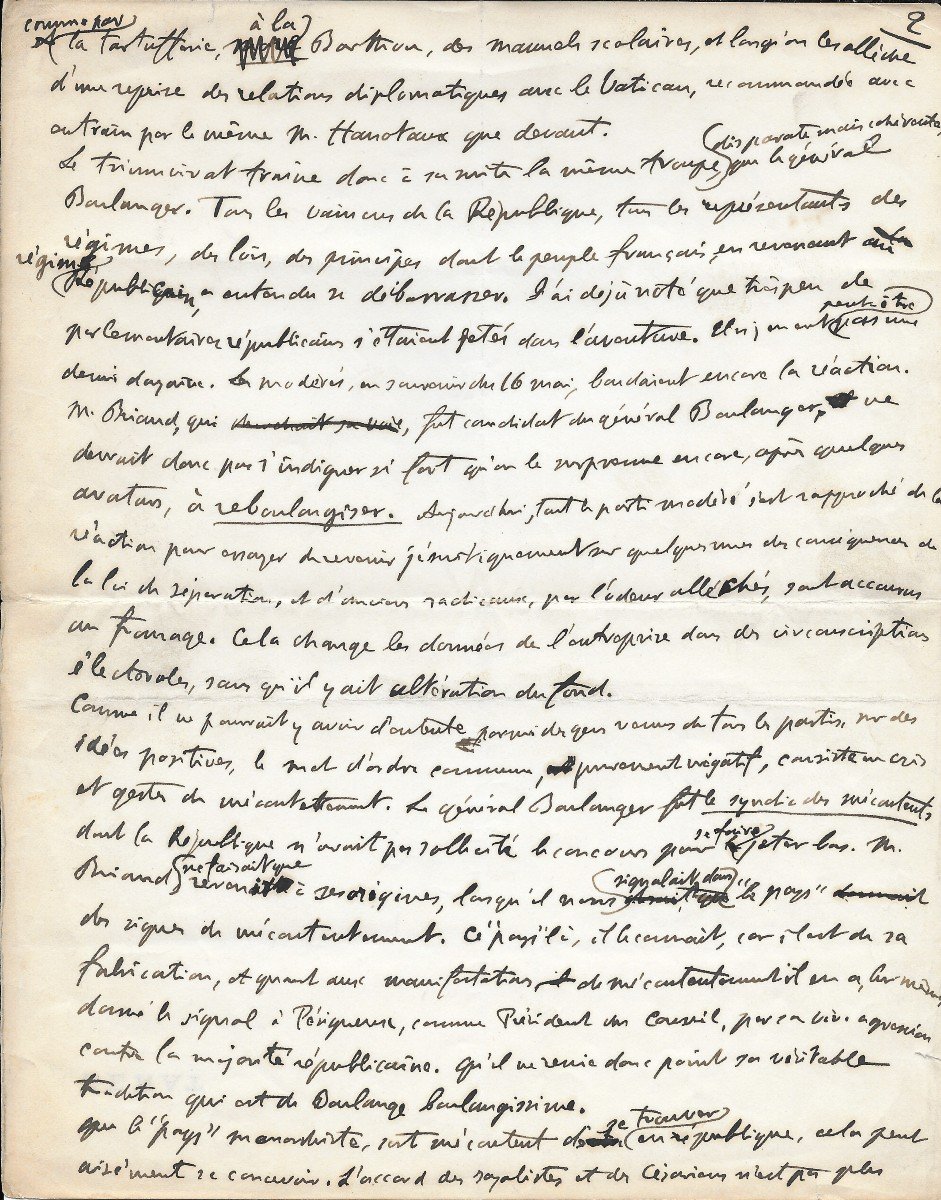 2
comme par à la
la tartufferie, Barthou, des manuels scolaires, et lorsqu'on les allèche
d'une reprise des relations diplomatiques avec le Vatican, recommandée avec
entrain par le même M. Hanotaux que devant.
disparate mais cohérente,
Le triumvirat traîne donc à sa suite la même troupe que le général
Boulanger. Tous les vaincus de la République, tous les représentants des
régimes, des lois, des principes dont le peuple français, en revenant au
régime
républicain, a entendu se débarrasser. J'ai déjà noté que très peu de
peut-être
parlementaires républicains s'étaient jetés dans l'aventure. Il n'y en eut pas une
demi douzaine. Les modérés, en souvenir du 16 mai, boudaient encore la réaction.
M. Briand, qui , fut candidat du général Boulanger, ne
devrait donc pas s'indigner si fort qu'on le surprenne encore, après quelques
avatars, à reboulangiser. Aujourd'hui, tout le parti modéré s'est rapproché de la
réaction pour essayer de revenir jésuitiquement sur quelques unes des conséquences de
la loi de séparation, et d'anciens radicaux, par l'odeur alléchés, sont accourus
au fromage. Cela change les données de l'entreprise dans des circonscriptions
électorales, sans qu'il y ait altération du fond.
Comme il ne pourrait y avoir d'entente parmi des gens venus de tous les partis, sur des
idées positives, le mot d'ordre commun, purement négatif, consiste en cris
et gestes de mécontentement. Le général Boulanger fut le syndic des mécontents
se faire
dont la République n'avait pas sollicité le concours pour jeter bas. M.
ne faisait que signalait dans
Briand revenir à ses origines, lorsqu'il nous "le pays"
des signes de mécontentement. Ce "pays" là, il le connaît, car il est de sa
fabrication, et quant aux manifestations de mécontentement il en a, lui-même,
donné le signal à Périgueux, comme Président du Conseil, par sa vive agression
contre la majorité républicaine. Qu'il ne renie donc point sa véritable
tradition qui est de Boulange boulangissime.
se trouver
Que le "pays" monarchiste, soit mécontent de en république, cela peut
aisément se concevoir. L'accord des royalistes et des Césariens n'est pas plus